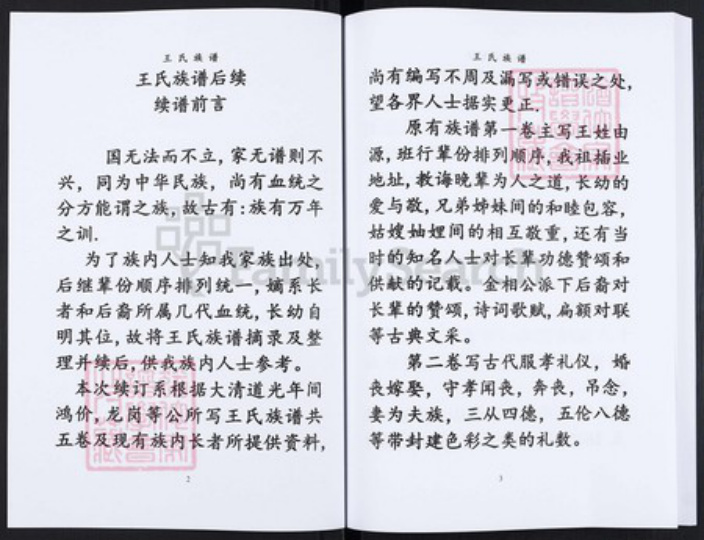 王氏族谱
王氏族谱后续
续谱前言
国无法而不立,家无谱则不
兴,同为中华民族,尚有血统之
分方能谓之族,故古有:族有万年
之训.
为了族内人士知我家族出处,
后继辈份顺序排列统一,嫡系长
者和后裔所属几代血统,长幼自
明其位,故将王氏族谱摘录及整
理并续后,供我族内人士参考。
本次续订系根据大清道光年间
鸿价,龙岗等公所写王氏族谱共
五卷及现有族内长者所提供资料,
2
王氏族谱
尚有编写不周及漏写或错误之处,
望各界人士据实更正.
原有族谱第一卷主写王姓由
源,班行辈份排列顺序,我祖插业
地址,教诲晚辈为人之道,长幼的
爱与敬,兄弟姊妹间的和睦包容,
姑嫂妯娌间的相互敬重,还有当
时的知名人士对长辈功德赞颂和
供献的记载。金相公派下后裔对
长辈的赞颂,诗词歌赋,扁额对联
等古典文采。
第二卷写古代服孝礼仪,婚
丧嫁娶,守孝闻丧,奔丧,吊念,
妻为夫族,三从四德,五伦八德
等带封建色彩之类的礼数。
3
FamilySearch